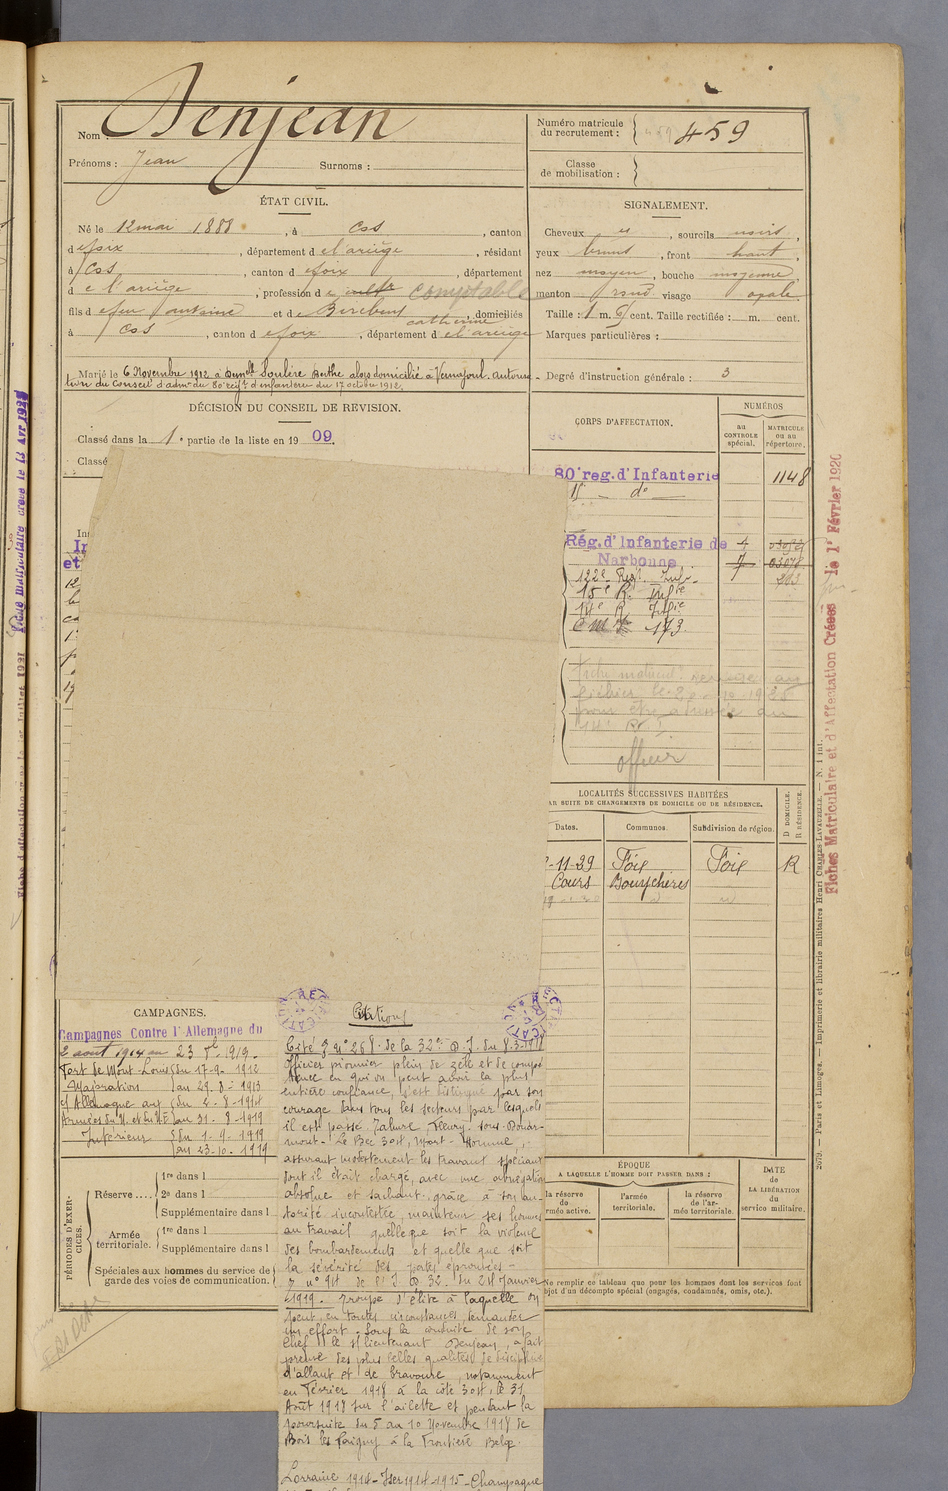 Nom : Denjean
Prénoms : Jean Surnoms :
Numéro matricule du recrutement : 459
Classe de mobilisation :
ÉTAT CIVIL.
Né le 12 mai 1888, à Cos, canton
d e foix, département d e l'ariège, résidant
à Cos, canton d e foix, département
d e l'ariège, profession de cult comptable
fils d e feu antoine et de catherine, domiciliés
à Cos, canton d e foix, département d e l'ariège
Marié le 6 Novembre 1912 à Soulère Berthe alors domicilié à Vernajoul. Autorisa-
tion du Conseil d'admon du 80e reigt d'infanterie du 17 octobre 1912.
SIGNALEMENT.
Cheveux et, sourcils noirs,
yeux bruns, front haut,
nez moyen, bouche moyenne,
menton rond visage ovale
Taille : 1 m. cent. Taille rectifiée : m. cent.
Marques particulières :
Degré d'instruction générale : 3
DÉCISION DU CONSEIL DE REVISION.
Classé dans la 1e partie de la liste en 1909.
Classé
CORPS D'AFFECTATION.
NUMÉROS
au CONTROLE spécial.
MATRICULE ou au répertoire.
80e reg. d'Infanterie 1148
do
Rég. d'Infanterie de
Narbonne
122e Regt. Inf.
15e R. Infie
14e R Infie
173
fichier le 20-10-1928
officier
LOCALITÉS SUCCESSIVES HABITÉES
AR SUITE DE CHANGEMENTS DE DOMICILE OU DE RÉSIDENCE.
Dates. Communes. Subdivision de région. D DOMICILE. R RÉSIDENCE.
-11-29 Foix Foix R
Cours Bouychères
CAMPAGNES.
Campagnes Contre l'Allemagne du
2 août 1914 au 23 1919.
Fort de Mont-Louis du 17-9-1912
Majoration au 29-8-1913
cl Allemagne aux du 2-8-1914
Armées du N. et du N.E au 31-8-1919
Intérieur du 1-9-1919
au 23-10-1919
PÉRIODES D'EXERCICES.
Réserve .... 1re dans l
2e dans l
Supplémentaire dans l
Armée territoriale. 1re dans l
Supplémentaire dans l
Spéciales aux hommes du service de
garde des voies de communication.
Citations
Cité du 8-3-1918
Officier pionnier plein de zèle et de compé
tence en qui on peut avoir la plus
entière confiance, s'est distingué par son
courage dans tous les secteurs par lesquels
il est passé. Tahure, Fleury-sous-Douau-
mont. Le Bec 304, Mort-Homme,
assurant modestement les travaux spéciaux
dont il était chargé, avec une abnégation
absolue et sachant grâce à son au-
torité incontestée, maintenir ses hommes
au travail quelle que soit la violence
des bombardements et quelle que soit
la sévérité des pertes éprouvées.
du 24 Janvier
1919. Groupe d'élite à laquelle on
peut en toutes circonstances demander
un effort. Sous la conduite de son
chef le s/lieutenant Denjean, a fait
preuve des plus belles qualités de discipline
d'allant et de bravoure, notamment
en Février 1918 à la côte 304, le 31
Août 1918 sur l'ailette et pendant la
poursuite du 5 au 10 Novembre 1918 de
Bois les Pargny à la Frontière Belge.
Lorraine 1914-Yser 1914-1915-Champagne
ÉPOQUE
A LAQUELLE L'HOMME DOIT PASSER DANS :
la réserve de l'armée active.
l'armée territoriale.
la réserve de l'armée territoriale.
DATE de LA LIBÉRATION du service militaire.
Ne remplir ce tableau que pour les hommes dont les services font
objet d'un décompte spécial (engagés, condamnés, omis, etc.).
2079. — Paris et Limoges. — Imprimerie et librairie militaires Henri CHARLES-LAVAUZELLE. — N. 1 int.
Fiches Matriculaire et d'Affectation Créées le 1er Février 1920